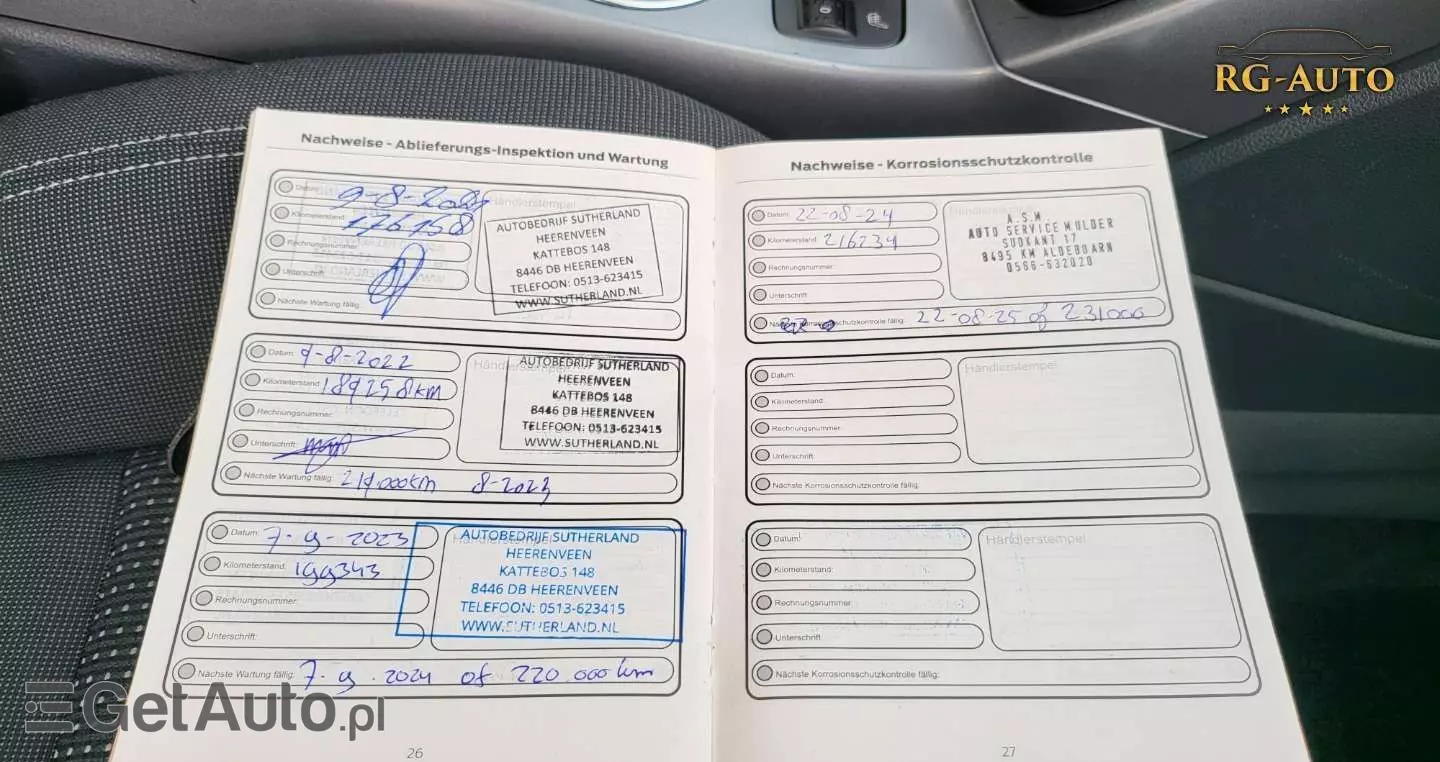 RG-AUTO
Nachweise - Ablieferungs-Inspektion und Wartung
Datum:
Kilometerstand: 176158
Rechnungsnummer:
Unterschrift:
Nächste Wartung fällig:
Händlerstempel
AUTOBEDRIJF SUTHERLAND
HEERENVEEN
KATTEBOS 148
8446 DB HEERENVEEN
TELEFOON: 0513-623415
WWW.SUTHERLAND.NL
Datum: 9-8-2022
Kilometerstand: 189258km
Rechnungsnummer:
Unterschrift:
Nächste Wartung fällig: 214.000km 8-2023
Händlerstempel
AUTOBEDRIJF SUTHERLAND
HEERENVEEN
KATTEBOS 148
8446 DB HEERENVEEN
TELEFOON: 0513-623415
WWW.SUTHERLAND.NL
Datum: 7-9-2023
Kilometerstand: 199343
Rechnungsnummer:
Unterschrift:
Nächste Wartung fällig: 7.9.2024 of 220.000km
Händlerstempel
AUTOBEDRIJF SUTHERLAND
HEERENVEEN
KATTEBOS 148
8446 DB HEERENVEEN
TELEFOON: 0513-623415
WWW.SUTHERLAND.NL
26
Nachweise - Korrosionsschutzkontrolle
Datum: 22-08-24
Kilometerstand: 216234
Rechnungsnummer:
Unterschrift:
Nächste Korrosionsschutzkontrolle fällig: 22-08-25 of 231000
Händlerstempel
A.S.M.
AUTO SERVICE MULDER
SUDKANT 17
8495 KM ALDEBOARN
0566-632020
Datum:
Kilometerstand:
Rechnungsnummer:
Unterschrift:
Nächste Korrosionsschutzkontrolle fällig:
Händlerstempel
Datum:
Kilometerstand:
Rechnungsnummer:
Unterschrift
Nächste Korrosionsschutzkontrolle fällig:
Händlerstempel
27
GetAuto.pl